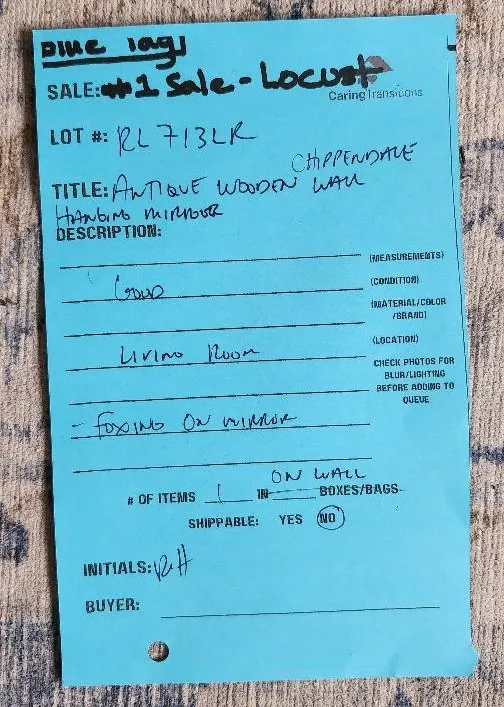 Blue Tags
SALE: #1 Sale - Locust
CaringTransitions
LOT #: RL713LR
CHIPPENDALE
TITLE: ANTIQUE WOODEN WALL
HANGING MIRROR
DESCRIPTION:
(MEASUREMENTS)
GOOD (CONDITION)
(MATERIAL/COLOR
/BRAND)
LIVING ROOM (LOCATION)
CHECK PHOTOS FOR
BLUR/LIGHTING
BEFORE ADDING TO
QUEUE
- FOXING ON MIRROR
ON WALL
# OF ITEMS 1 IN BOXES/BAGS
SHIPPABLE: YES NO
INITIALS: RH
BUYER: